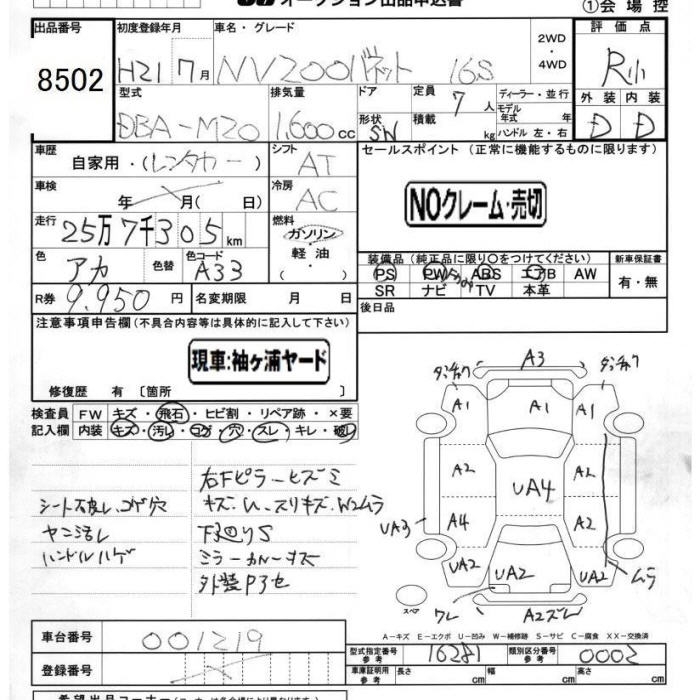 オークション出品申込書 ①会場控
出品番号 初度登録年月 車名・グレード 2WD・4WD 評価点
8502 H21 7月 NV200バネット 16S R小
型式 排気量 ドア 定員 7人 ディーラー・並行 外装 内装
DBA-M20 1,600cc 形状 SW 積載 kg モデル年式 年 ハンドル 左・右 D D
車歴 自家用・(レンタカー) シフト AT セールスポイント(正常に機能するものに限ります)
車検 年 月( 日) 冷房 AC NOクレーム・売切
走行 25万7千305km 燃料 ガソリン・軽油・( )
色 アカ 色替 色コード A33 装備品(純正品に限り○をつけてください) 新車保証書
PS PW ABS エアB AW 有・無
SR ナビ TV 本革
R券 9,950円 名変期限 月 日 後日品
注意事項申告欄(不具合内容等は具体的に記入して下さい)
現車:袖ヶ浦ヤード
修復歴 有〔箇所 〕
検査員 FW キズ・飛石・ヒビ割・リペア跡・×要
記入欄 内装 キズ・汚レ・コゲ・穴・スレ・キレ・破レ
右Fピラーヒズミ
シート破レ、コゲ穴 キズ・U・スリキズ・W2ムラ
ヤニ汚レ 下廻りS
ハンドルハゲ ミラーカバーキズ
外装P3セ
A3
タッチアク タッチアク
A1 A1 A1
A2 UA4 A2
UA3 A4 A2
UA2 UA2 UA2 ムラ
スペア ワレ A2ズレ
A-キズ E-エクボ U-凹み W-補修跡 S-サビ C-腐食 XX-交換済
車台番号 001219 型式指定番号 参考 16281 類別区分番号 参考 0002
登録番号 車庫証明用 参考 長さ cm 幅 cm 高さ cm